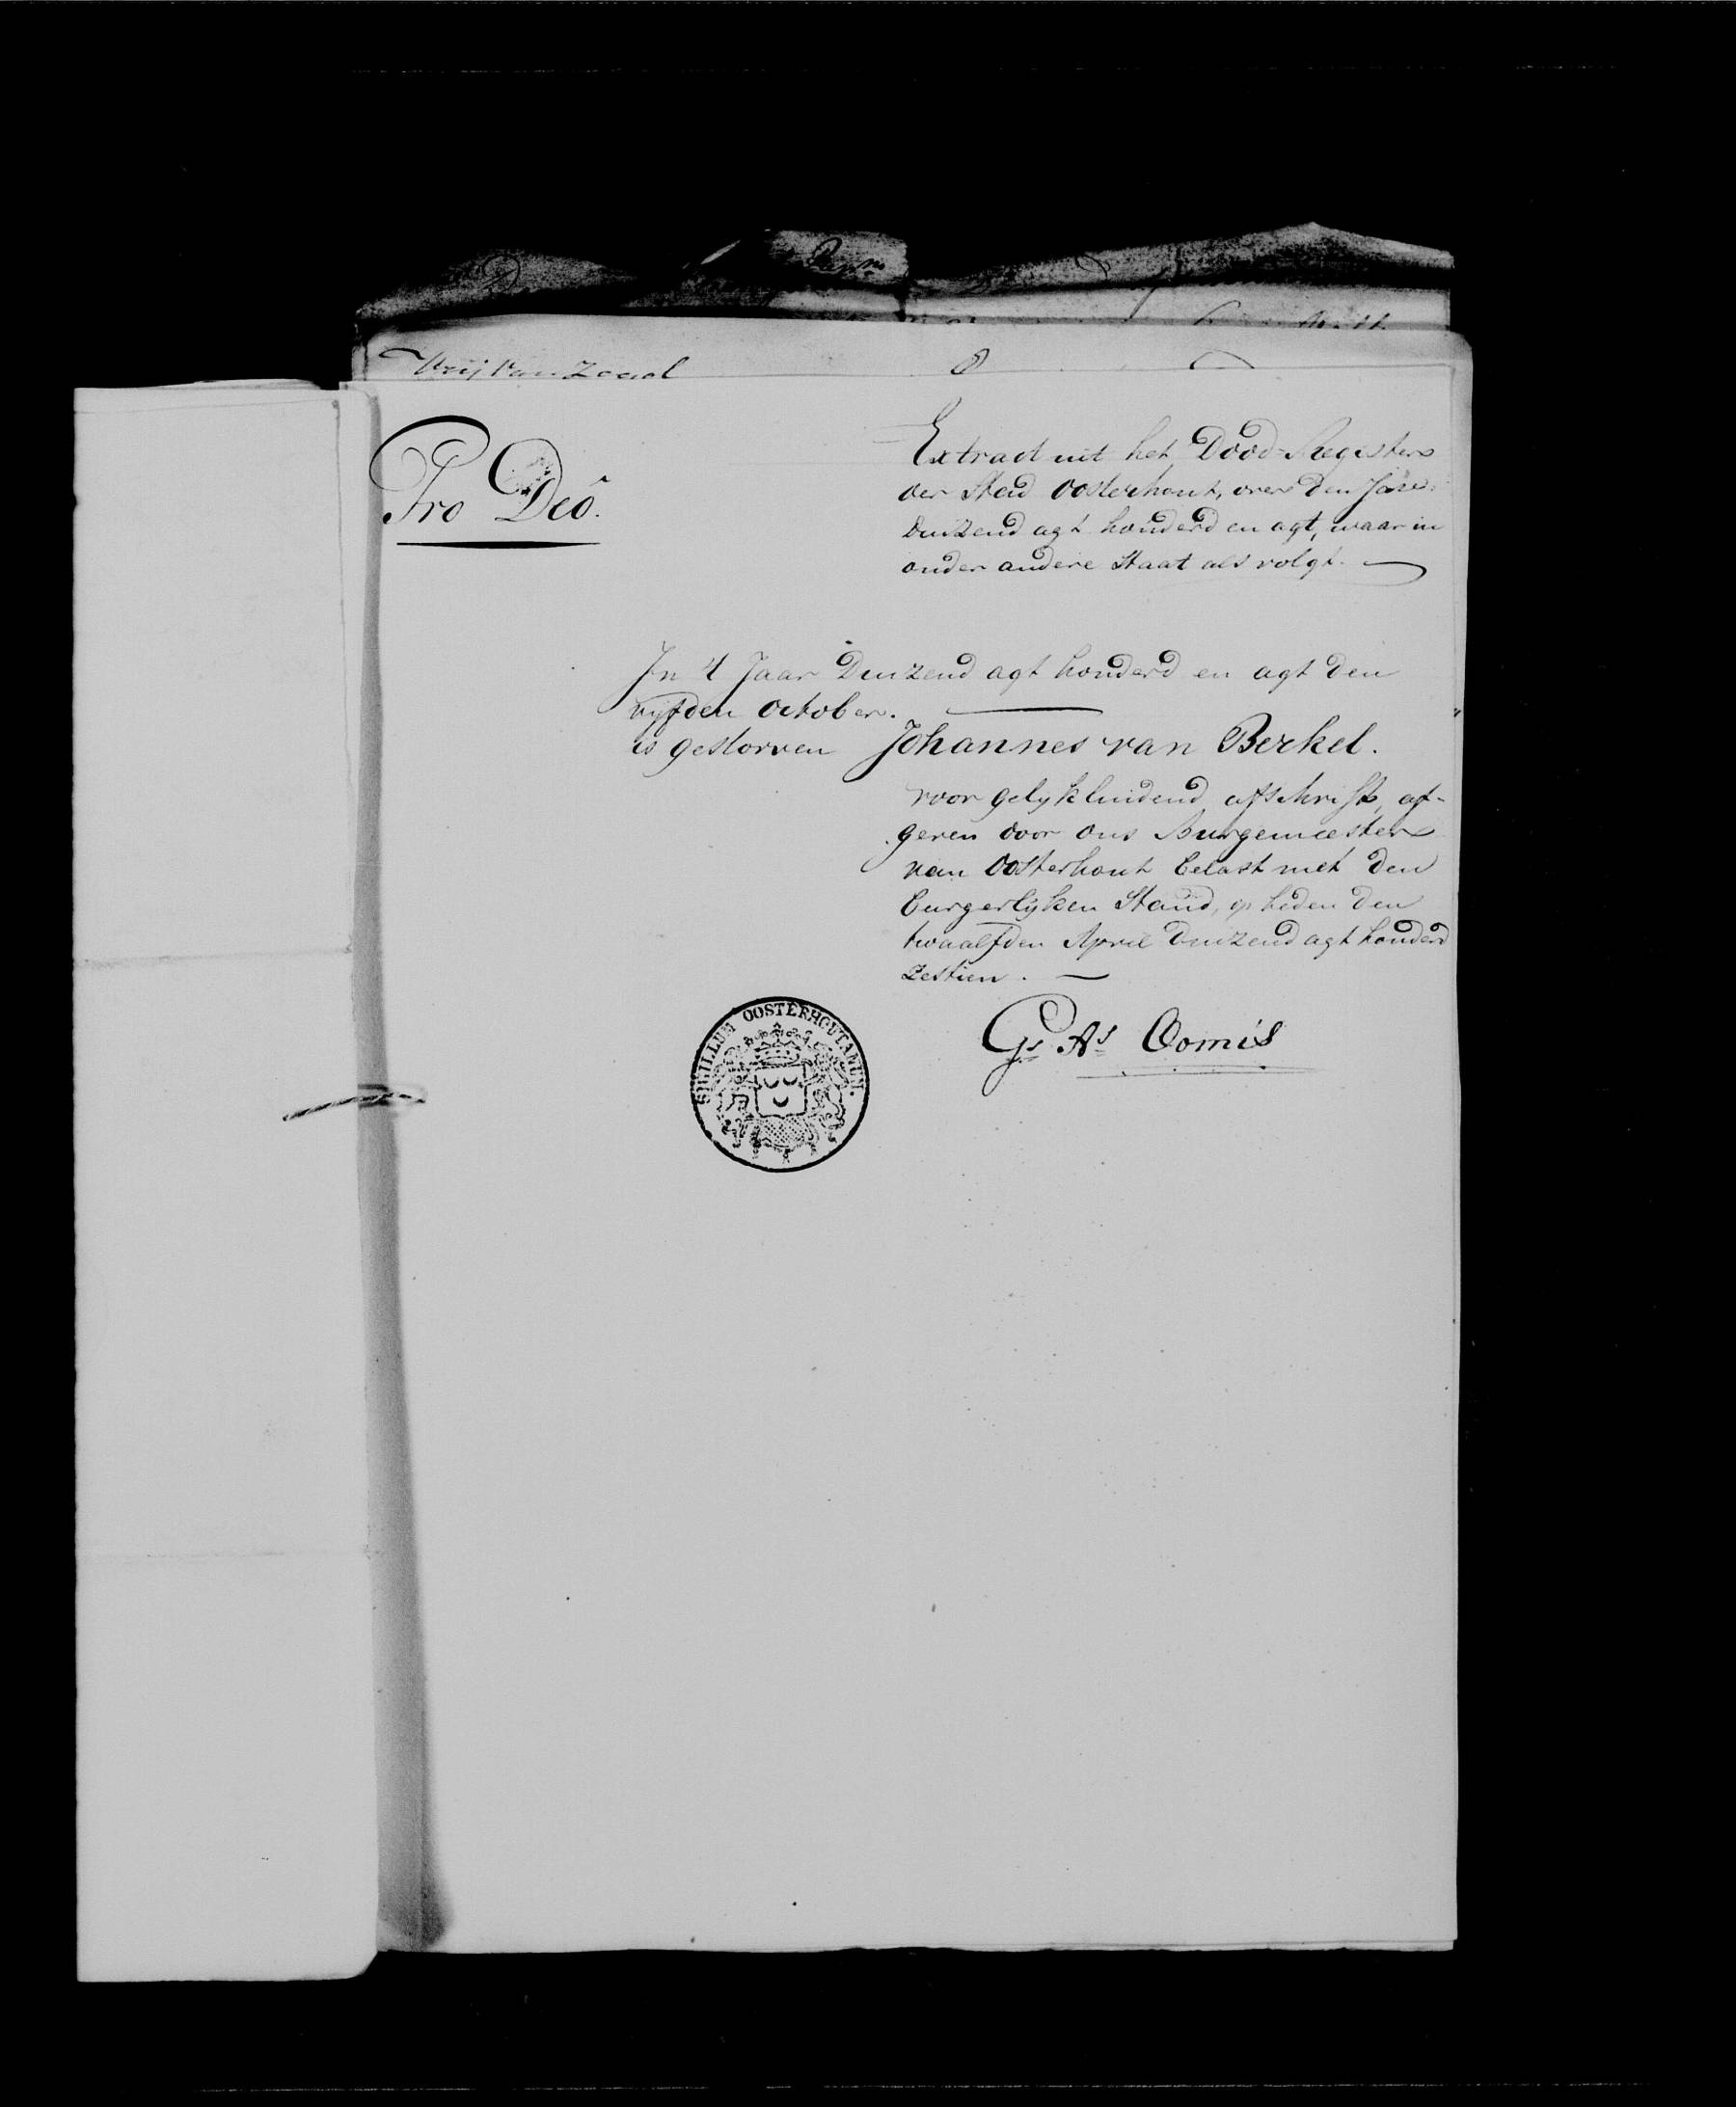 Vrij van Zegel
Pro Deo.
Extract uit het Dood-Register
der Stad Oosterhout, over den Jare
Duizend agt honderd en agt, waar in
onder andere Staat als volgt.
In 't Jaar Duizend agt honderd en agt den
vyfden October.
is gestorven Johannes van Berkel.
voor gelykluidend afschrift, af-
geven door ons Burgemeester
van Oosterhout belast met den
burgerlyken Stand, op heden den
twaalfden April duizend agt honderd
Zestien.
Gs. As Oomis
SIGILLUM OOSTERHOUTANUM.